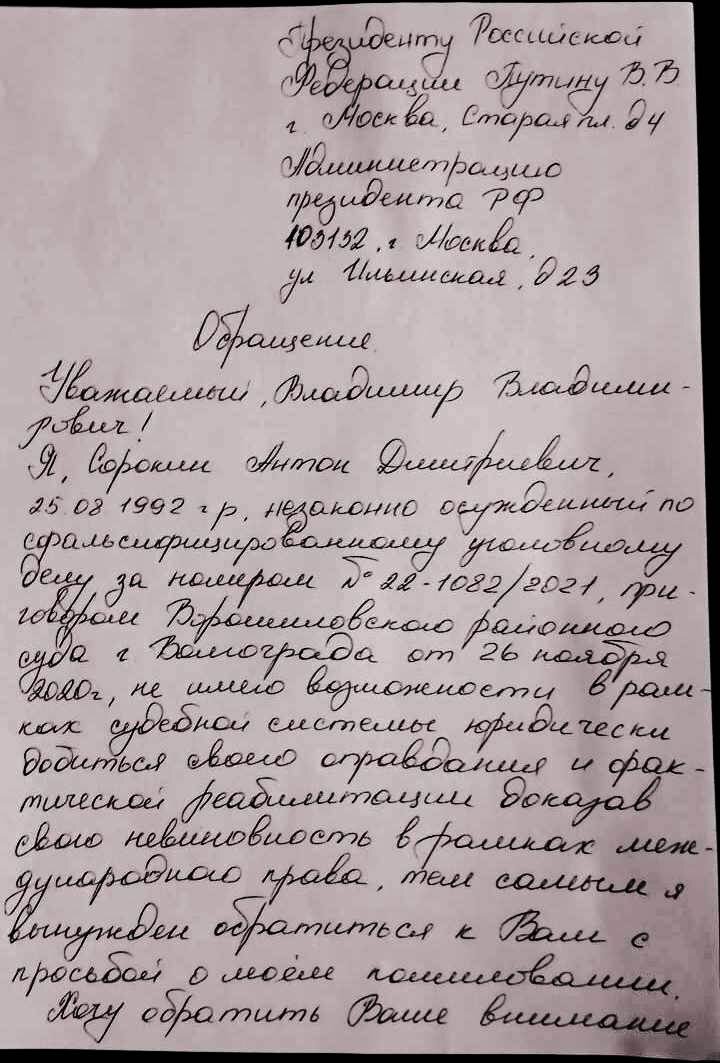 Президенту Российской
Федерации Путину В.В.
г. Москва, Старая пл. д 4
Администрацию
президента РФ
103132, г Москва,
ул Ильинская, д 23
Обращение.
Уважаемый, Владимир Владими-
рович!
Я, Сорокин Антон Дмитриевич,
25.08 1992 г р, незаконно осужденный по
сфальсифицированному уголовному
делу за номером № 22-1082/2021, при-
говором Ворошиловского районного
суда г Волгограда от 26 ноября
2020г, не имею возможности в рам-
ках судебной системы юридически
добиться своего оправдания и фак-
тической реабилитации доказав
свою невиновность в рамках меж-
дународного права, тем самым я
вынужден обратиться к Вам с
просьбой о моём помиловании.
Хочу обратить Ваше внимание